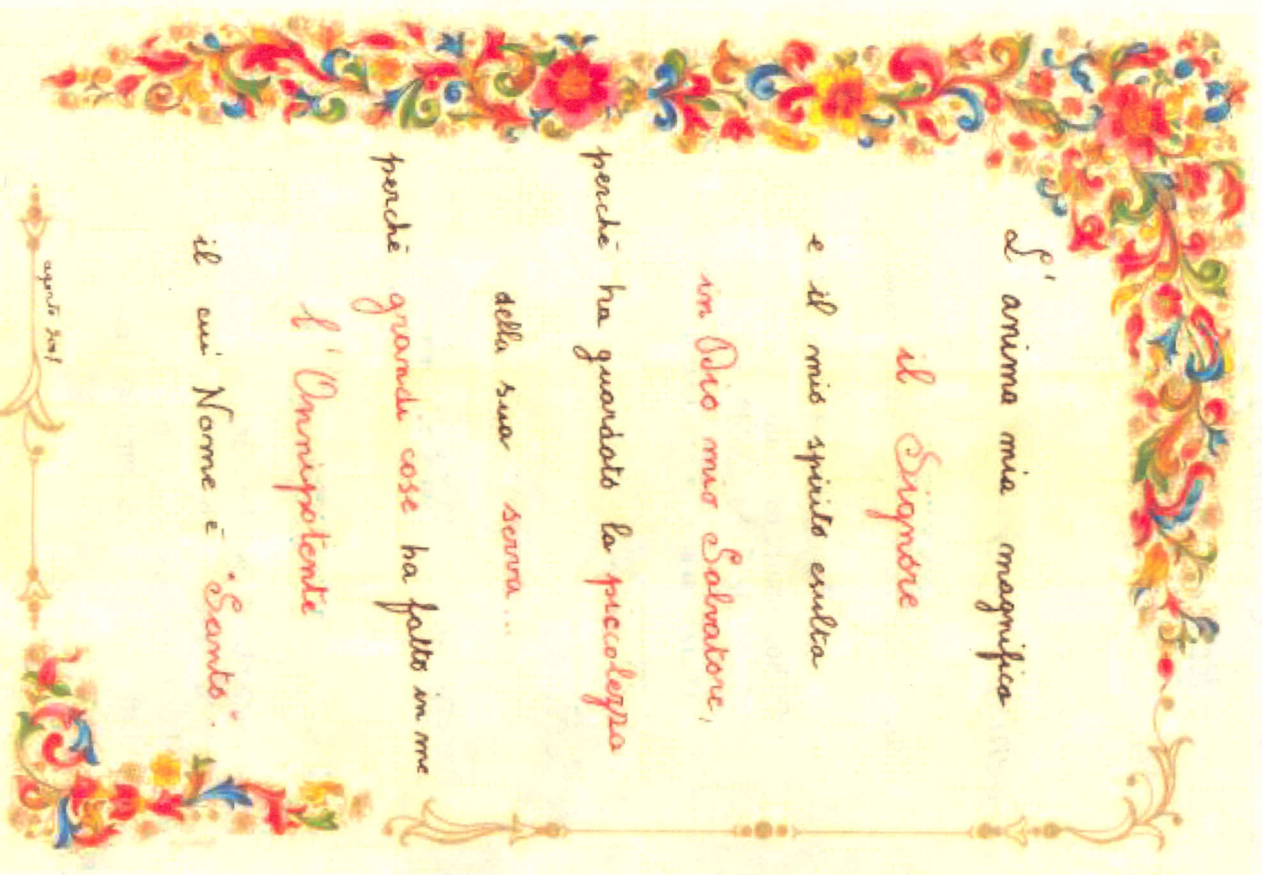 L'anima mia magnifica
il Signore
e il mio spirito esulta
in Dio mio Salvatore,
perchè ha guardato la piccolezza
della sua serva...
perchè grandi cose ha fatto in me
l'Onnipotente
il cui Nome è "Santo".
agosto 2001